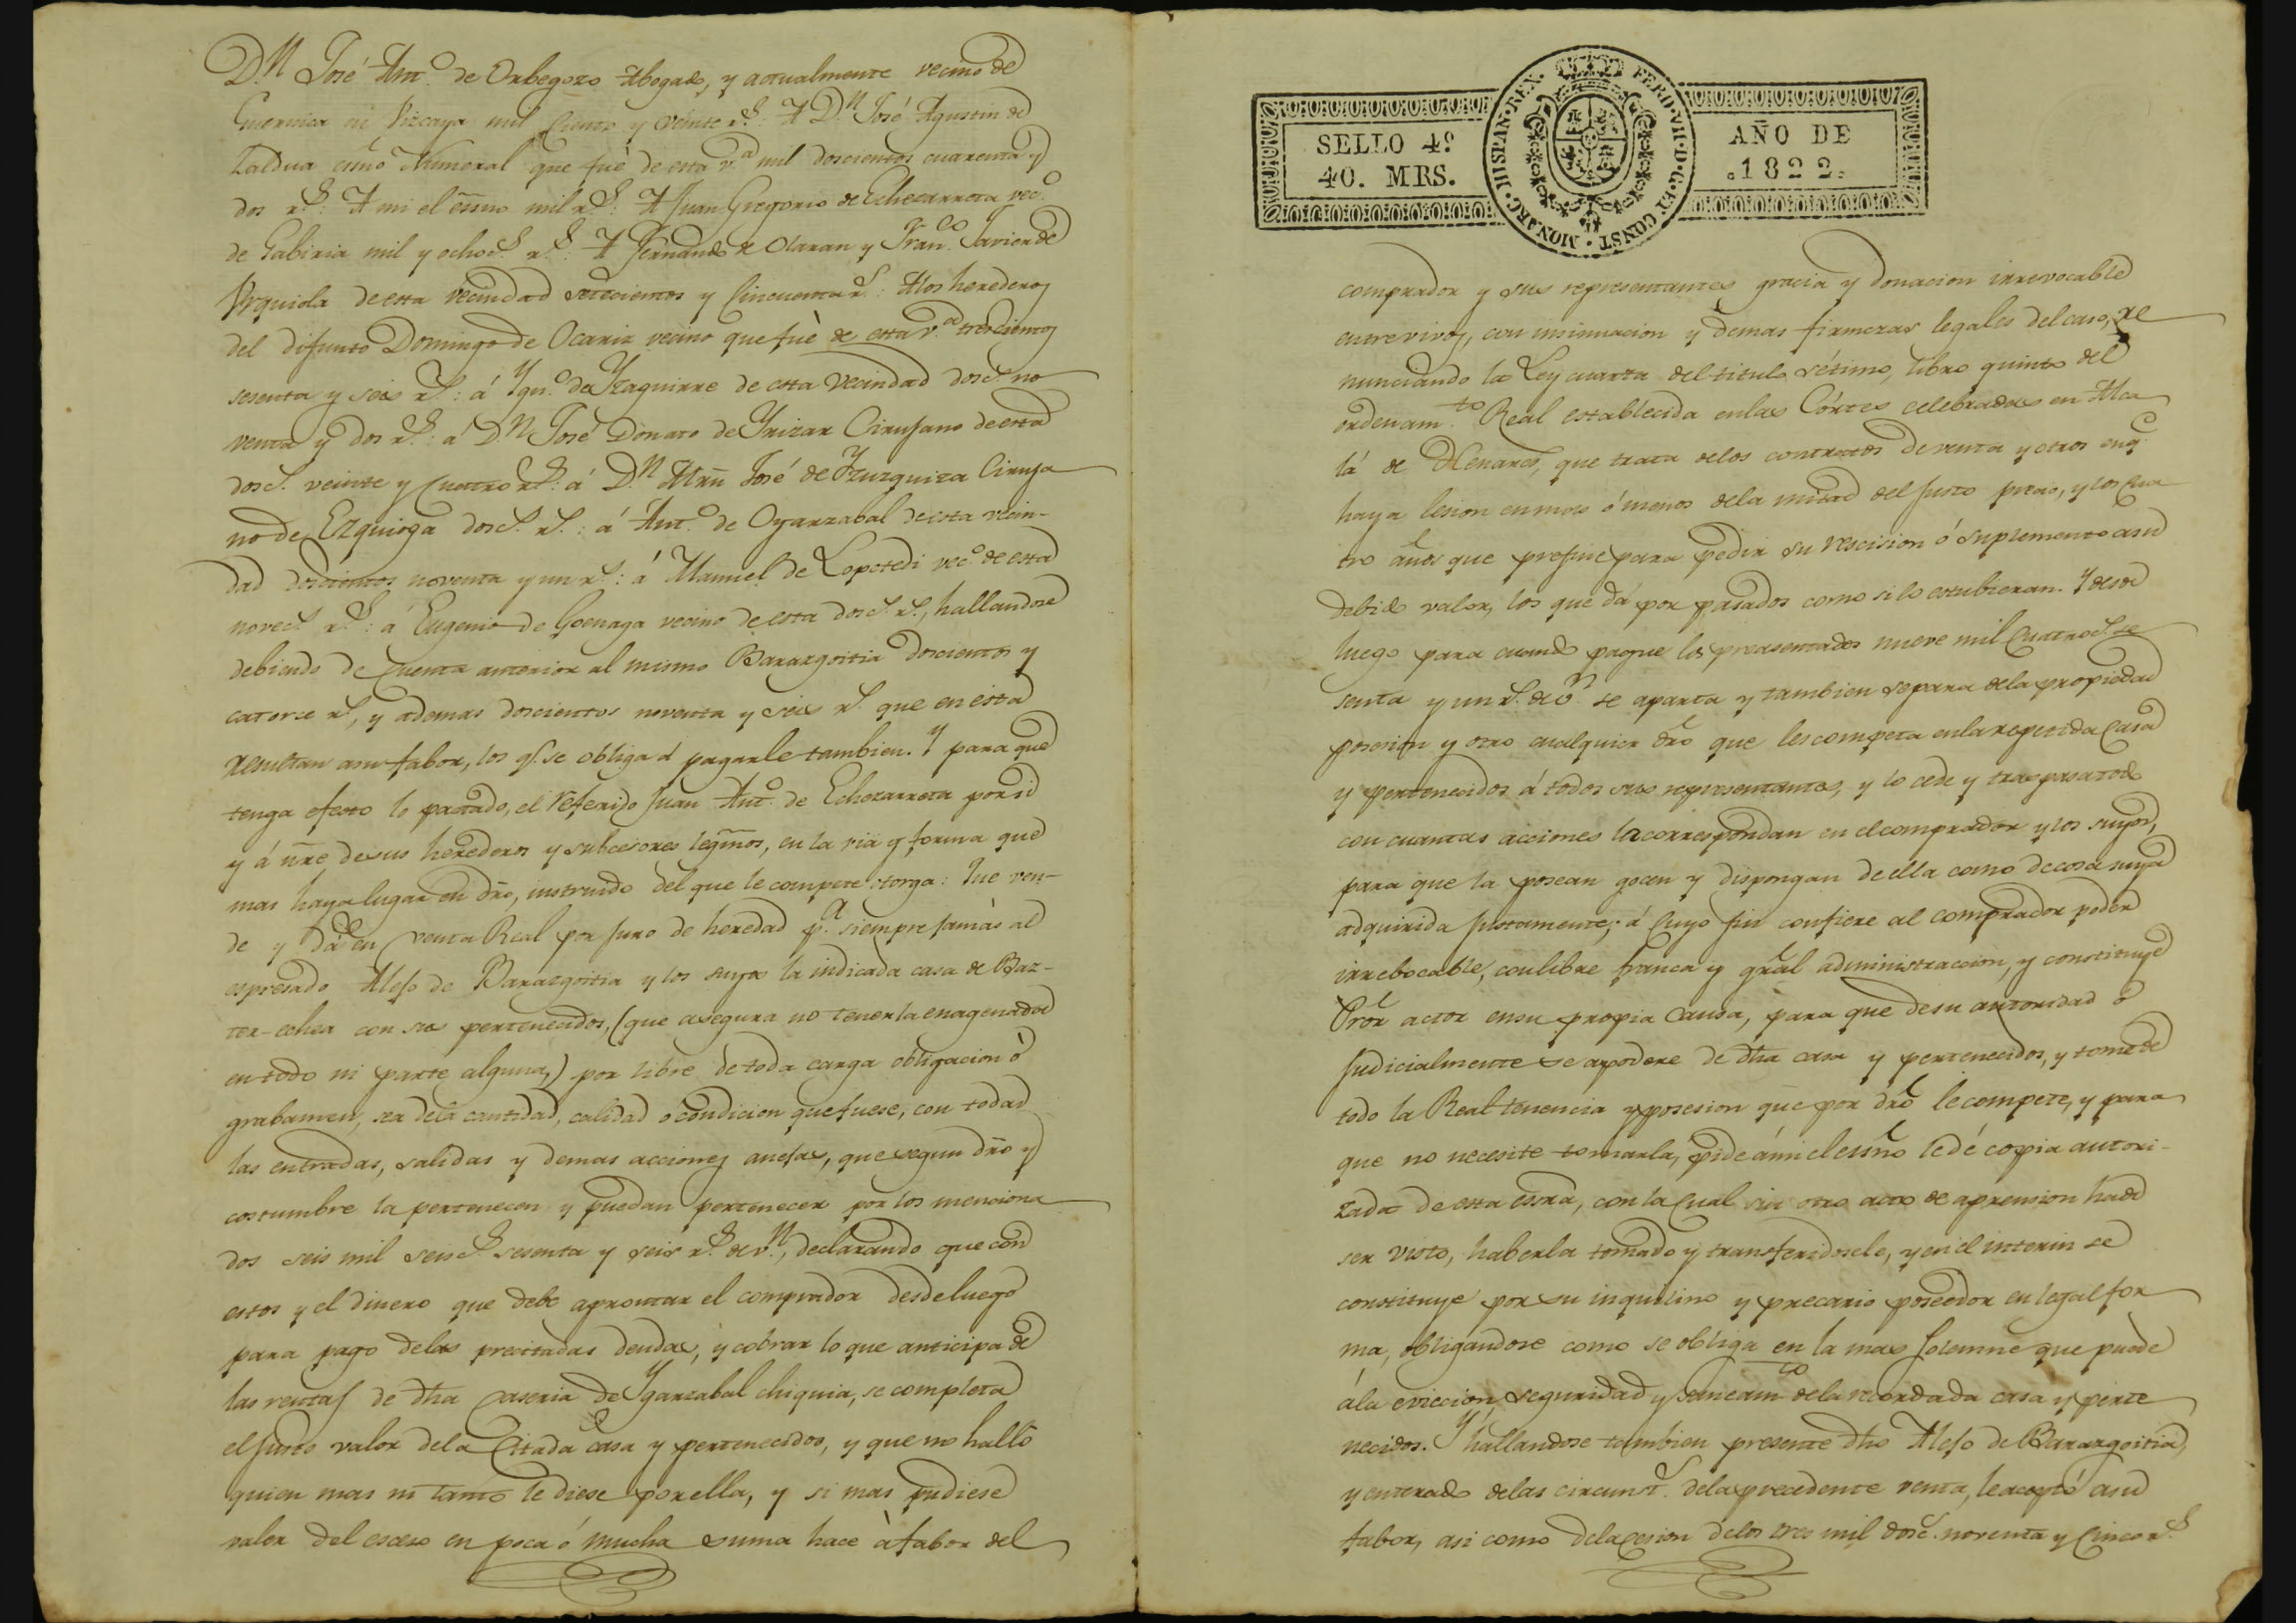 D.n José Ant.o de Orbegozo Abogado, y actualmente vecino de
Guernica en Vizcaya mil ciento y veinte r.s: A D.n José Agustin de
Zaldua esño Numeral que fué de esta v.a mil doscientos cuarenta y
dos r.s: A mi el essno mil r.s: A Juan Gregorio de Echezarreta vec.o
de Gabiria mil y ochoc.s r.s: A Fernando de Olaran y Fran.co Javier de
Urquiola de esta vecindad setecientos y cincuenta r.s: A los herederos
del difunto Domingo de Ocariz vecino que fuè de esta v.a trescientos
sesenta y seis r.s: á Ygn.o de Yzaguirre de esta vecindad dosc.s no
venta y dos r.s: á D.n José Donato de Yrizar Cirujano de esta
dosc.s veinte y cuatro r.s: á D.n Mrñ José de Yzuzquiza Ciruja
no de Ezquioga dosc.s r.s: á Ant.o de Oyarzabal de esta vecin-
dad doscientos noventa y un r.s: á Manuel de Lopetedi vec.o de esta
novec.s r.s: á Eugenio de Goenaga vecino de esta dosc.s r.s, hallandose
debiendo de cuenta anterior al mismo Barazgoitia doscientos y
catorce r.s, y ademas doscientos noventa y seis r.s que en esta
resultan a su fabor, los q.s se obliga á pagarle tambien. Y para que
tenga efecto lo pactado, el referido Juan Ant.o de Echezarreta por si
y á ñre de sus herederos y subcesores legmos, en la via y forma que
mas haya lugar en dro, instruido del que le compete otorga: Que ven-
de y dá en venta Real por juro de heredad p.a siempre jamàs al
espresado Alejo de Barazgoitia y los suyos la indicada casa de Baz-
ter-echea con sus pertenecidos, (que asegura no tenerla enagenada
en todo ni parte alguna,) por libre de toda carga obligacion ò
grabamen, sea dela cantidad, calidad o condicion que fuese, con todas
las entradas, salidas y demas acciones anejas, que segun dro y
costumbre la pertenecen y puedan pertenecer por los menciona
dos seis mil seisc.s sesenta y seis r.s de v.n, declarando que con
estos y el dinero que debe aprontar el comprador desde luego
para pago delas precitadas deudas, y cobrar lo que anticipa de
las rentas de dha caseria de Ygarzabal chiquia, se completa
el justo valor dela citada casa y pertenecidos, y que no halló
quien mas ni tanto le diese por ella, y si mas pudiese
valer del esceso en poca ó mucha suma hace à fabor del
SELLO 4º
40. MRS.
HISPAN·REX· FERD·VII·D·G·ET CONST·MONARC·
AÑO DE
1822.
comprador y sus representantes gracia y donacion irrevocable
entre vivos, con insinuacion y demas firmezas legales del caso, re
nunciando la Ley cuarta del titulo sétimo, libro quinto del
ordenam.to Real establecida en las Córtes celebradas en Alca
lá de Henares, que trata delos contratos de venta y otros en q.e
haya lesion en mas ó menos dela mitad del justo precio, y los cua
tro años que prefine para pedir su rescision ó suplemento a su
debido valor, los que dá por pasados como si lo estubieran. Y desde
luego para cuando pague los preasentados nueve mil cuatroc.s se
senta y un r.s de v.n se aparta y tambien separa dela propiedad
posesion y otro cualquier dro que les competa en la repetida casa
y pertenecidos á todos sus representantes, y lo cede y traspasa todo
con cuantas acciones la correspondan en el comprador y los suyos,
para que la posean gocen y dispongan de ella como de cosa suya
adquirida justamente; á cuyo fin confiere al comprador poder
irrebocable, con libre franca y gral administracion, y constituye
Pror actor en su propia causa, para que de su autoridad ó
judicialmente se apodere de dha casa y pertenecidos, y tome de
todo la Real tenencia y posesion que por dro le compete, y para
que no necesite tomarla, pide á mi el essno le dé copia autori-
zada de esta essra, con la cual sin otro acto de aprension ha de
ser visto, haberla tomado y transferidosele, y en el interin se
constituye por su inquilino y precario poseedor en legal for
ma, obligandose como se obliga en la mas solemne que puede
á la eviccion, seguridad y saneam.to dela recordada casa y perte
necidos. Y hallandose tambien presente dho Alejo de Barazgoitia,
y enterado delas circunst.s dela precedente venta, le aceptó a su
fabor, asi como dela cesion delos tres mil dosc.s noventa y cinco r.s